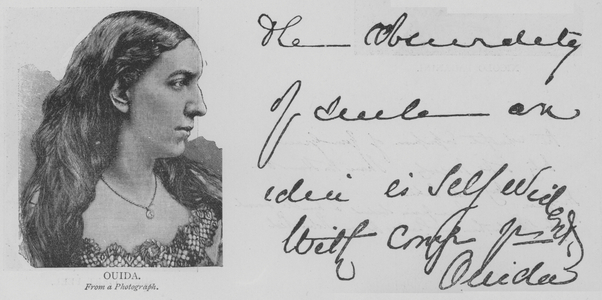 OUIDA.
From a Photograph.
The absurdity
of such an
idea is Self Evident
With
Ouida